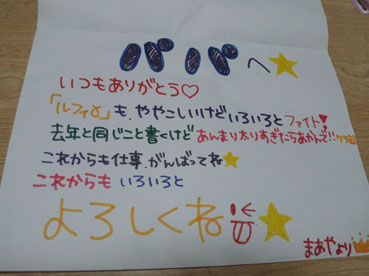 パパへ
いつもありがとう♡
「ルフィ」も、ややこしいけどいろいろとファイト!
去年と同じこと書くけどあんまり太りすぎたらあかんで!!
これからも仕事、がんばってね
これからもいろいろと
よろしくね
まあやより